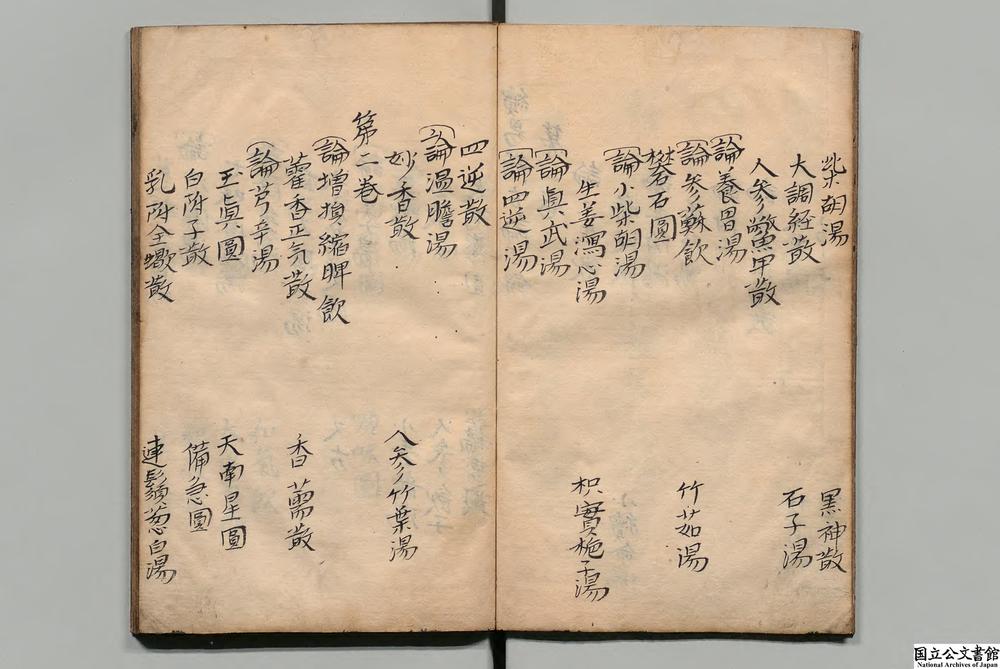 柴胡湯　黒神散
大調経散　石子湯
人参鼈甲散
論養胃湯
論参蘇飲　竹茹湯
礬石圓
論小柴胡湯
生姜瀉心湯　枳實梔子湯
論眞武湯
論四逆湯
四逆散
論温膽湯
妙香散　人参竹葉湯
第二巻
論増損縮脾飲
藿香正気散　香薷散
論芎辛湯
玉眞圓　天南星圓
白附子散　備急圓
乳附全蠍散　連鬚葱白湯
国立公文書館
National Archives of Japan